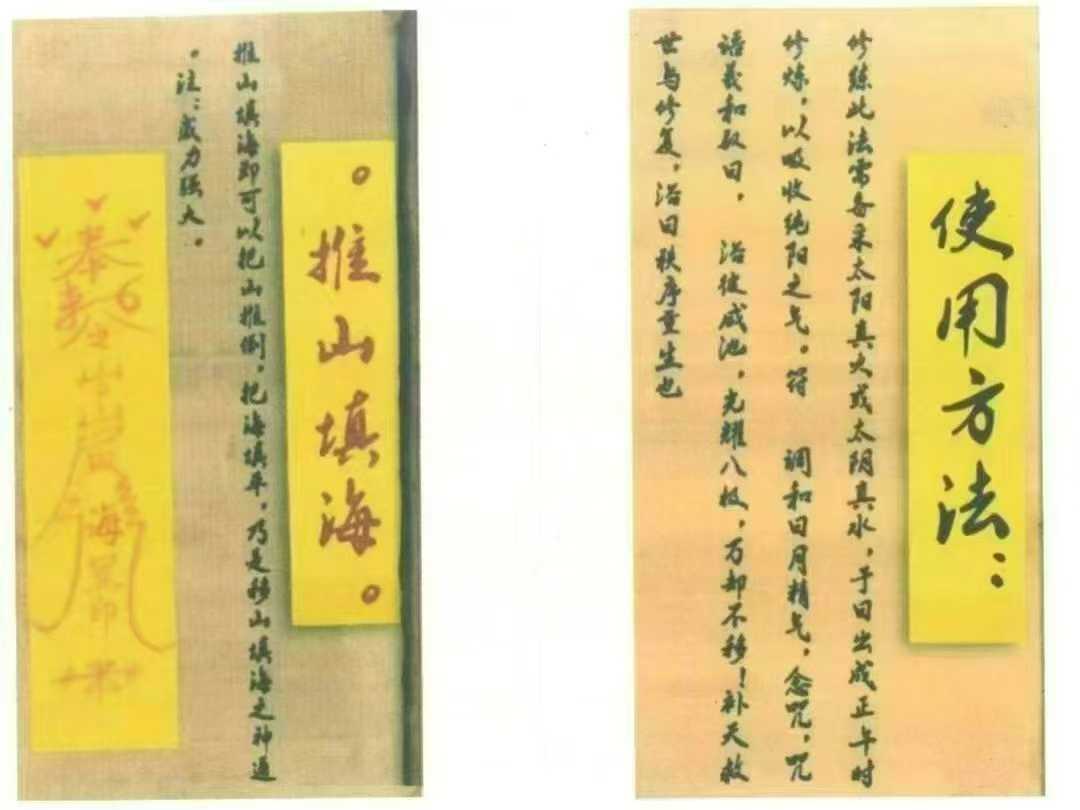 使用方法：
修练此法需备采太阳真火或太阴真水，于日出成正午时
修炼，以吸收纯阳之气。符 调和日月精气，念咒，咒
语羲和驭日， 浴彼咸池，光耀八极，万却不移！补天救
世与修复，浴日秩序重生也
。推山填海。
推山填海即可以把山推倒，把海填平，乃是移山填海之神通
。注：威力强大。
奉 山 海 印